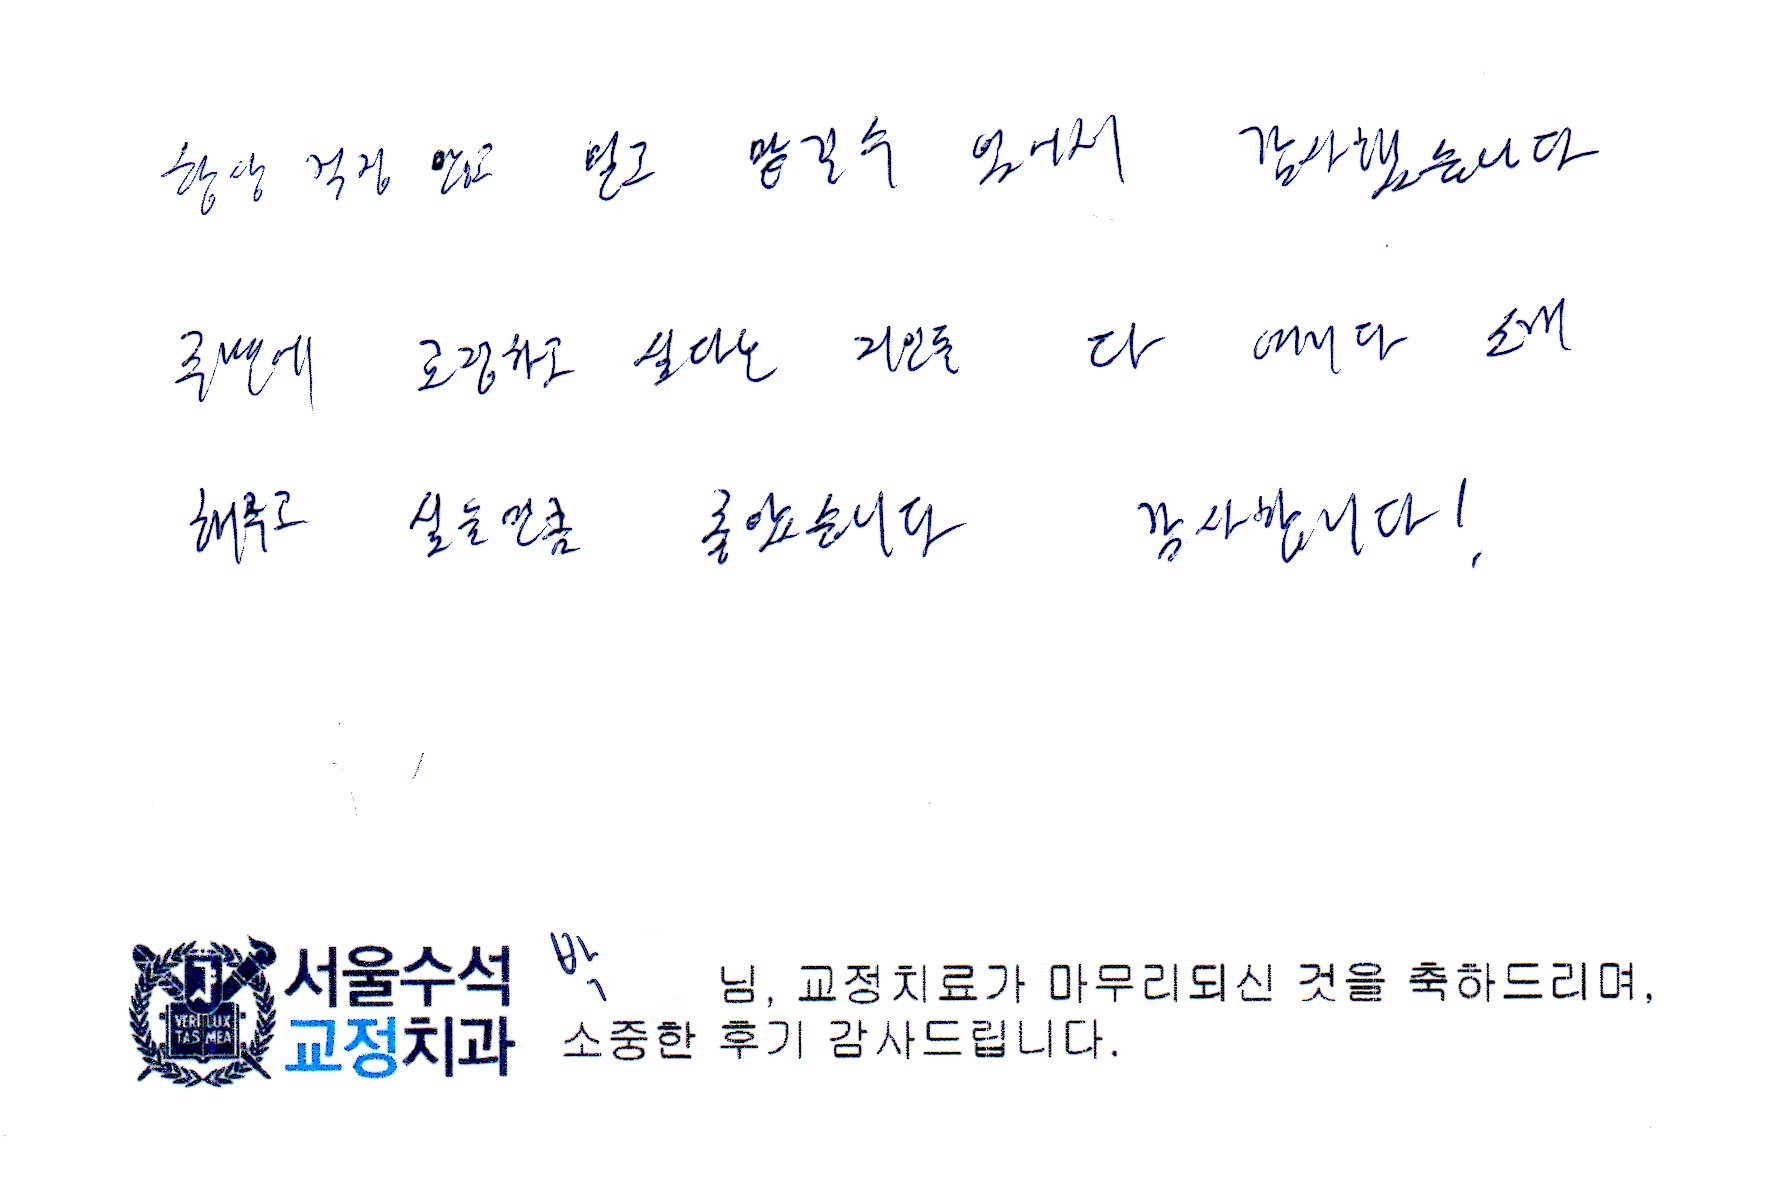 항상 걱정 않고 믿고 맡길수 있어서 감사했습니다
주변에 교정하고 싶다는 지인들 다 여기다 소개
해주고 싶을만큼 좋았습니다 감사합니다!
서울수석
교정치과
VERI LUX
TAS MEA
박 님, 교정치료가 마무리되신 것을 축하드리며,
소중한 후기 감사드립니다.